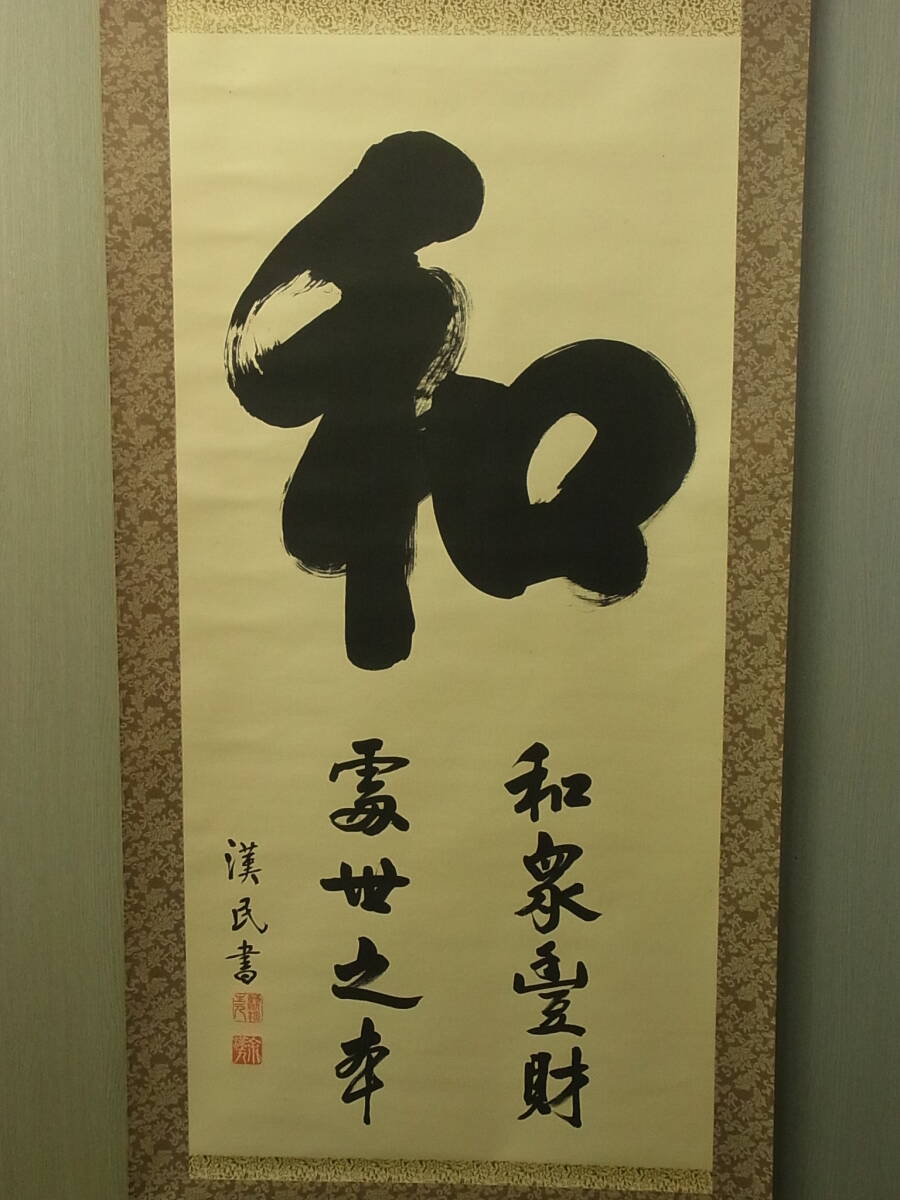 和
和衆豊財
處世之本
漢民書